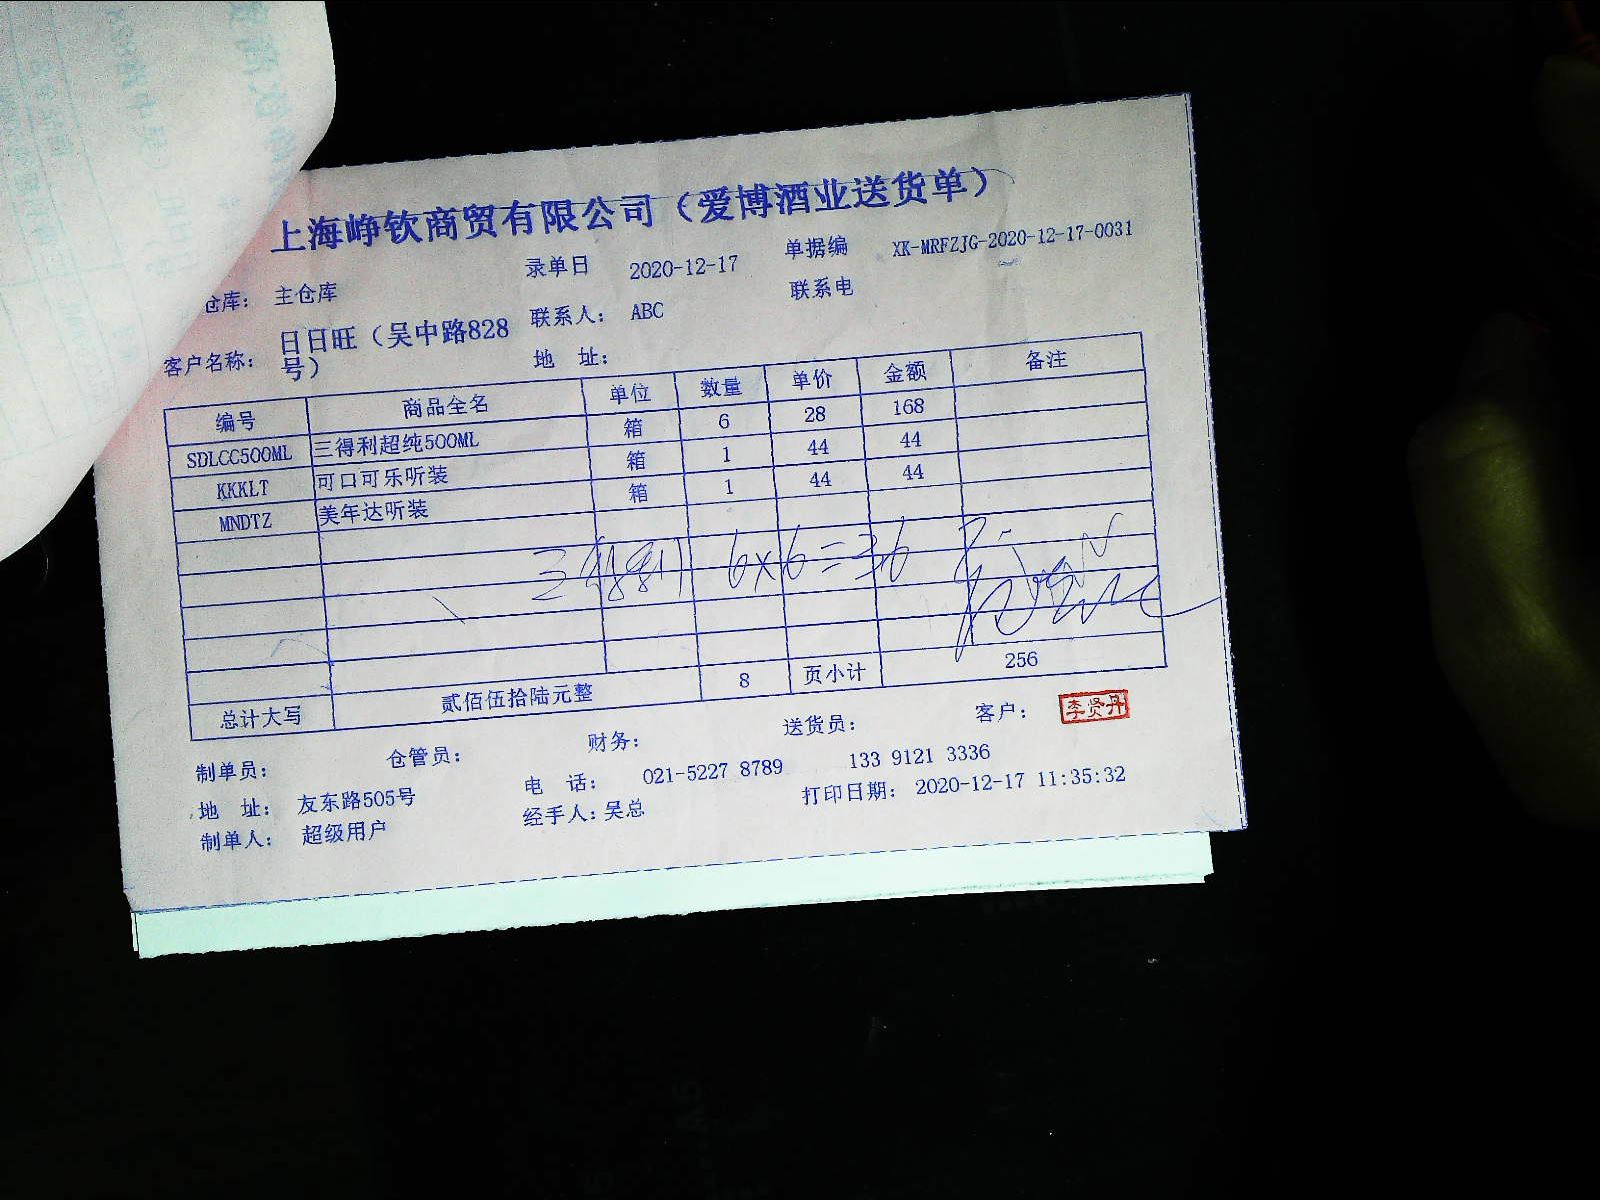 上海峥钦商贸有限公司（爱博酒业送货单）
仓库： 主仓库 录单日 2020-12-17 单据编 XK-MRFZJG-2020-12-17-0031
客户名称： 日日旺（吴中路828号） 联系人： ABC 联系电
地 址：
编号 商品全名 单位 数量 单价 金额 备注
SDLCC500ML 三得利超纯500ML 箱 6 28 168
KKKLT 可口可乐听装 箱 1 44 44
MNDTZ 美年达听装 箱 1 44 44
6×6=36
总计大写 贰佰伍拾陆元整 8 页小计 256
制单员： 仓管员： 财务： 送货员： 客户： 李贤丹
地 址： 友东路505号 电 话： 021-5227 8789 133 9121 3336
制单人： 超级用户 经手人：吴总 打印日期： 2020-12-17 11:35:32